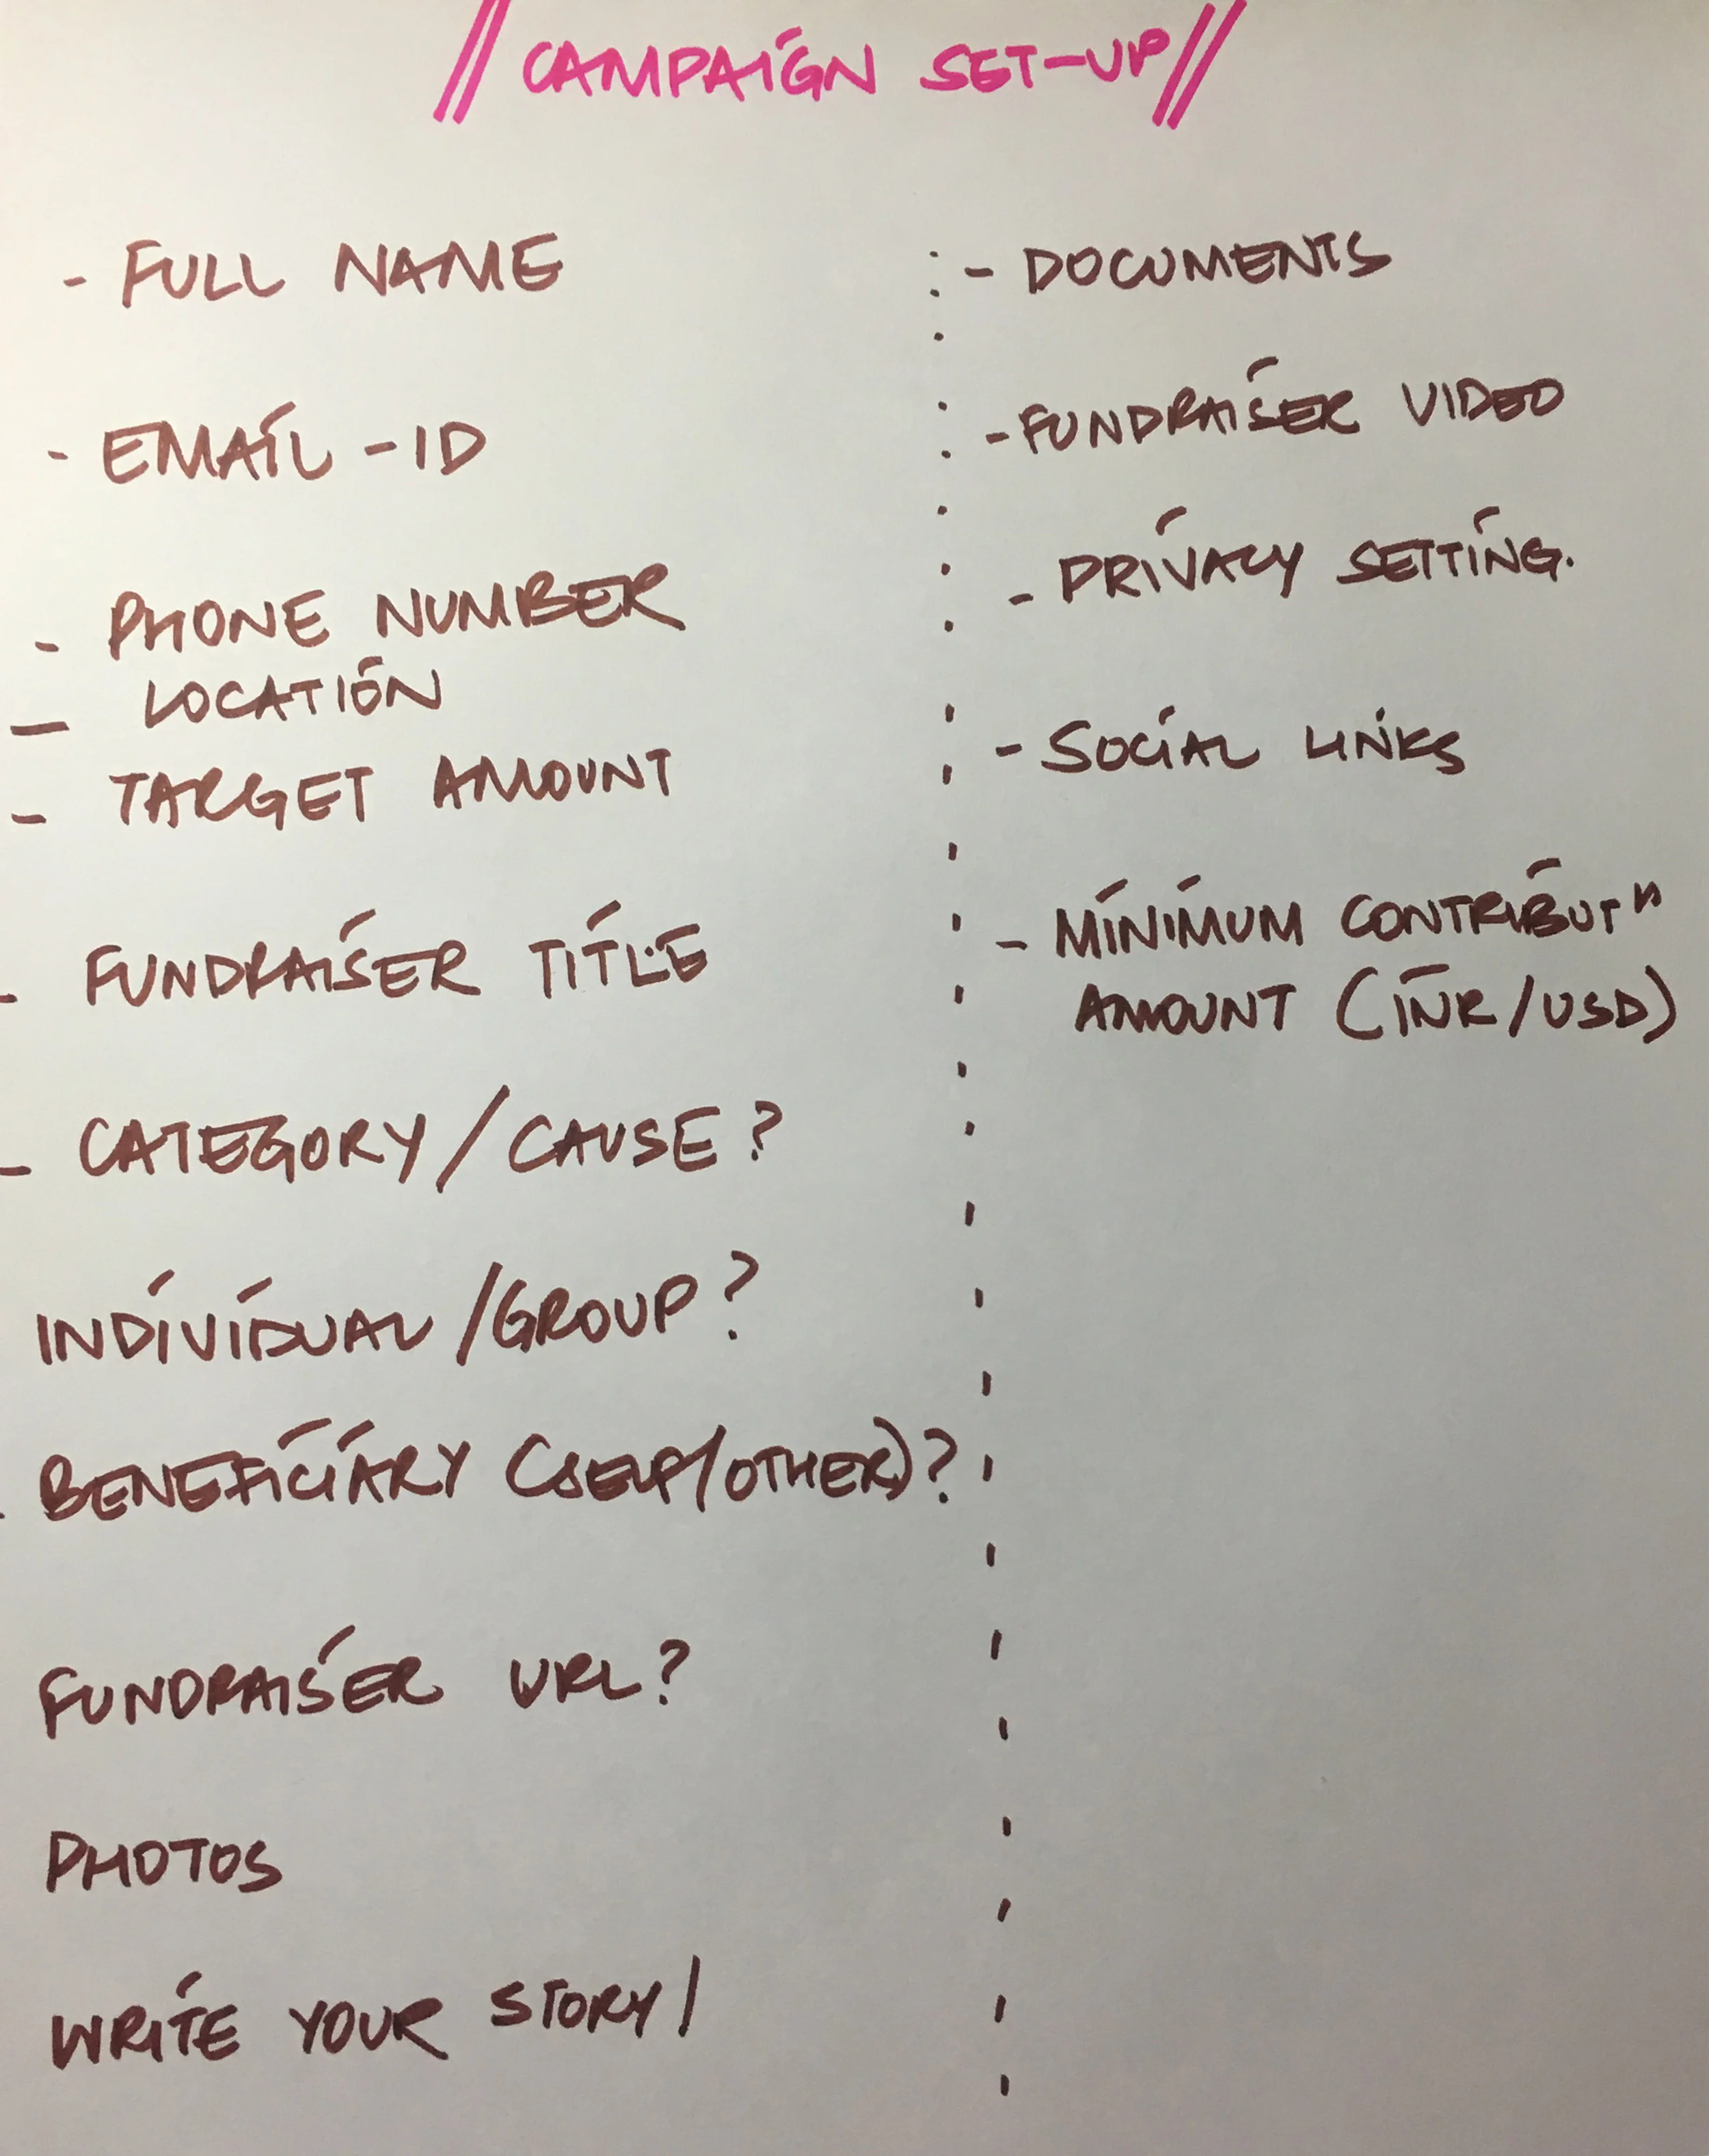 //CAMPAIGN SET-UP//
- FULL NAME
- EMAIL-ID
- PHONE NUMBER
- LOCATION
- TARGET AMOUNT
- FUNDRAISER TITLE
- CATEGORY/CAUSE?
INDIVIDUAL/GROUP?
- BENEFICIARY (SELF/OTHER)?
FUNDRAISER URL?
PHOTOS
WRITE YOUR STORY/
- DOCUMENTS
- FUNDRAISER VIDEO
- PRIVACY SETTING.
- SOCIAL LINKS
- MINIMUM CONTRIBUTⁿ
AMOUNT (INR/USD)